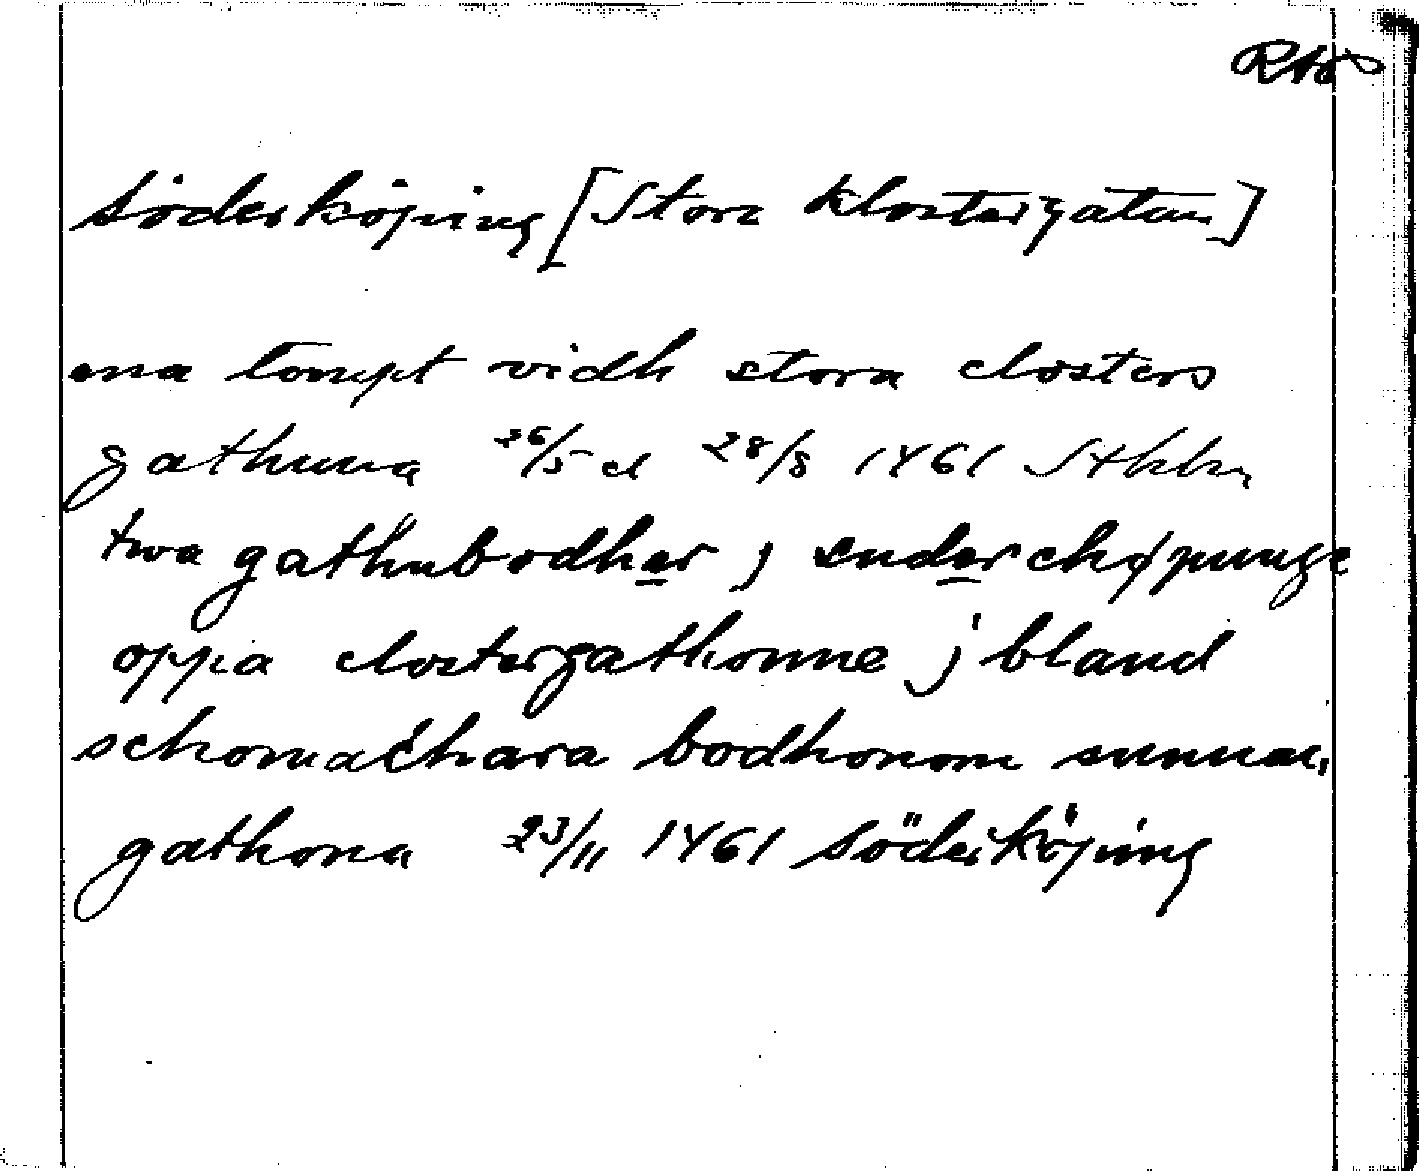 RAö
Söderköping [Stora Klostergatan]
ena tompt vidh stora closters
gathuna 26/5 el 28/8 1461 Sthlm
twa gathubodher j suderchøpunge
oppa clostergathonne j bland
schomachara bodhonom sunnan
gathona 23/11 1461 Söderköping